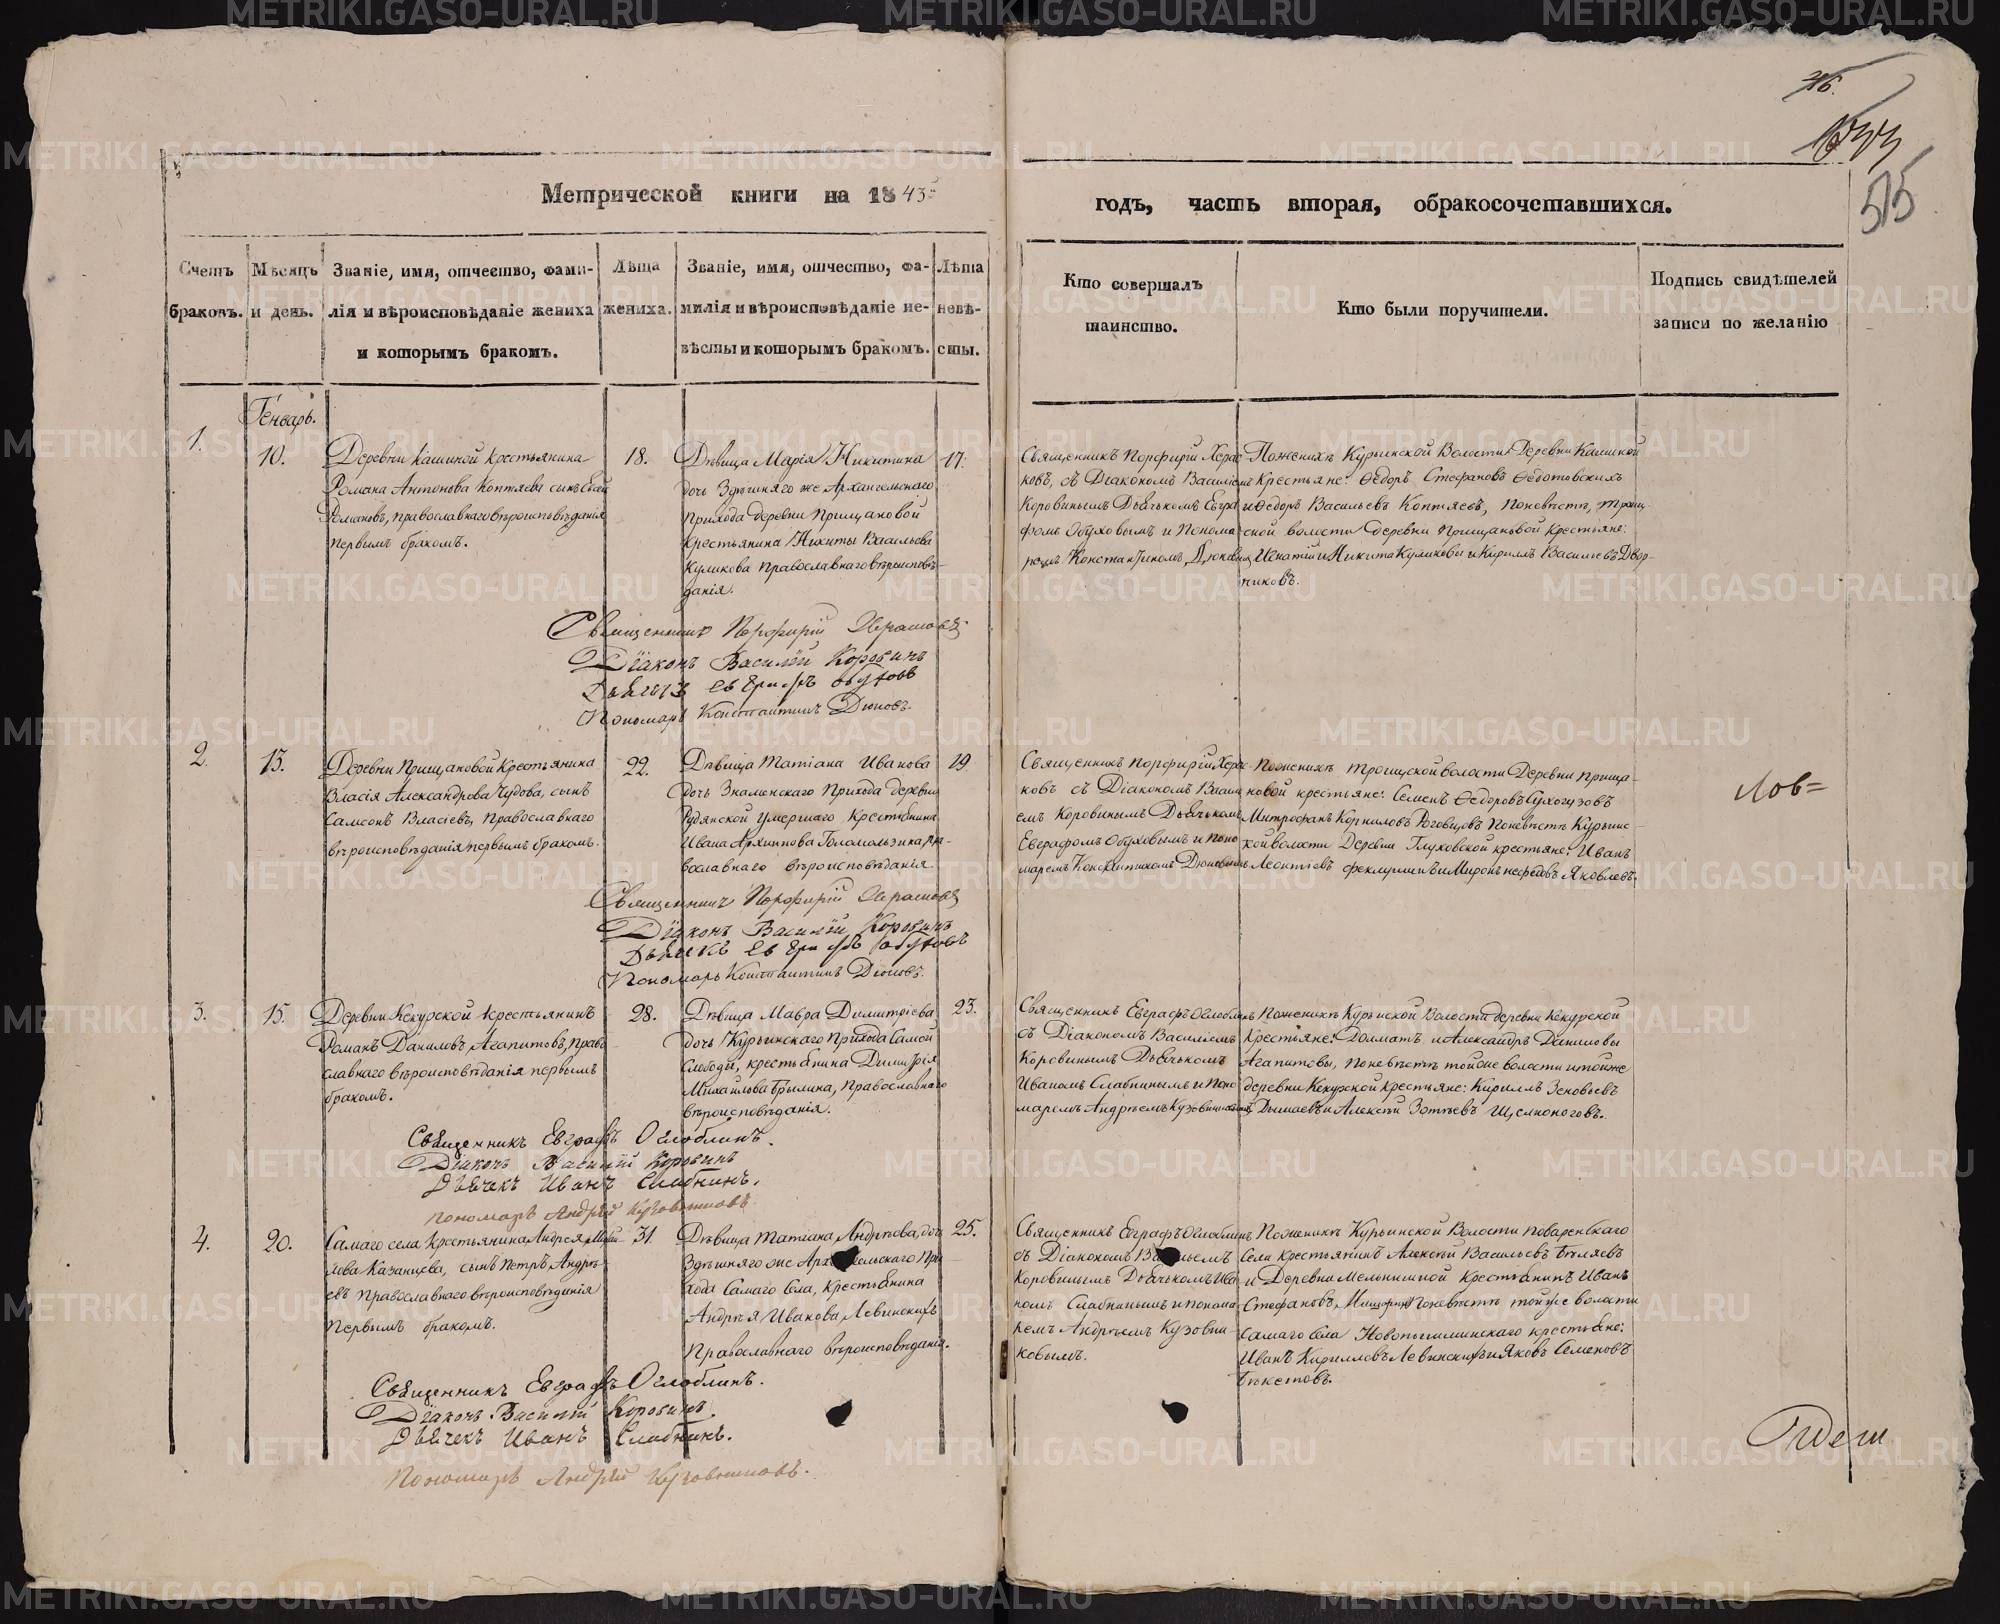 Метрической книги на 1843й
годъ, часть вторая, обракосочетавшихся.
515
Счетъ браковъ.
Мѣсяцъ и день.
Званіе, имя, отчество, фами-
лія и вѣроисповѣданіе жениха
и которымъ бракомъ.
Лѣта
жениха.
Званіе, имя, отчество, фа-
милія и вѣроисповѣданіе не-
вѣсты и которымъ бракомъ.
Лѣта
невѣ-
сты.
Кто совершалъ
таинство.
Кто были поручители.
Подпись свидѣтелей
записи по желанію
Генварь.
1.
10.
Деревни Кашиной крестьянина
Романа Антонова Коптяева сынъ
Романовъ, православнаго вѣроисповѣданія
первымъ бракомъ.
18.
Дѣвица Марія Никитина
дочь Здѣшняго же Архангельскаго
Прихода деревни Прищановой
крестьянина Никиты Васильева
Куликова православнаго вѣроисповѣ-
данія.
17.
Священникъ Порфирій
ковъ, съ Діакономъ Василіемъ
Коровинымъ Дьячькомъ Евгра
фомъ Обуховымъ и Понома
ремъ Константиномъ
По женихѣ Курьинской Волости Деревни Кашиной
Крестьяне: Ѳедоръ Стефановъ Ѳедотовскихъ
и Ѳедоръ Васильевъ Коптяевъ, По невѣстѣ, Троиц-
ской волости деревни Прищановой Крестьяне:
Игнатій и Никита Куликовы и Кирилъ Васильевъ Двор-
никовъ.
Священникъ Порфирій
Діаконъ Василій Коровинъ
Дьячекъ Евграфъ Обуховъ
Пономарь Константинъ Дюковъ.
2.
13.
Деревни Прищановой Крестьянина
Власія Александрова Чудова, сынъ
Самсонъ Власіевъ, Православнаго
вѣроисповѣданія первымъ бракомъ.
22.
Дѣвица Татіана Иванова
дочь Знаменскаго Прихода деревни
Рудянской умершаго Крестьянина
Ивана Архипова Голомолзина, пра-
вославнаго вѣроисповѣданія
19.
Священникъ Порфирій
ковъ съ Діакономъ Васил
емъ Коровинымъ Дьячькомъ
Евграфомъ Обуховымъ и Поно
маремъ Константиномъ
По женихѣ Троицской волости Деревни Прища-
новой крестьяне: Семенъ Ѳедоровъ Сухогузовъ
Митрофанъ Корниловъ Роговцовъ По невѣстѣ Курьинс-
кой волости Деревни Глуховской крестьяне: Иванъ
Леонтіевъ и Миронъ Яковлевъ.
Лов=
Священникъ Порфирій
Діаконъ Василій Коровинъ
Дьячекъ Евграфъ Обуховъ
Пономарь Константинъ Дюковъ.
3.
15.
Деревни Кекурской крестьянинъ
Романъ Даниловъ Агапитовъ, Право
славнаго вѣроисповѣданія первымъ
бракомъ.
28.
Дѣвица Мавра Димитріева
дочь Курьинскаго Прихода Самой
Слободы, крестьянина Димитрія
Михайлова Брылина, Православнаго
вѣроисповѣданія.
23.
Священникъ Евграфъ Оглоблинъ
съ Діакономъ Василіемъ
Коровинымъ Дьячькомъ
Иваномъ Слабнинымъ и Поно
маремъ Андрѣемъ
По женихѣ Курьинской Волости деревни Кекурской
Крестьяне: Долматъ и Александръ Даниловы
Агапитовы, По невѣстѣ той же волости и той же
деревни Кекурской крестьяне: Кирилъ Зеновьевъ
и Алексѣй Зотѣевъ Щелконоговъ.
Священникъ Евграфъ Оглоблинъ.
Діаконъ Василій Коровинъ
Дьячекъ Иванъ Слабнинъ.
Пономарь Андрей Кузовниковъ
4.
20.
Самаго села Крестьянина Андрея Михай-
лова Казанцева, сынъ Петръ Андре-
евъ православнаго вѣроисповѣданія
Первымъ бракомъ.
31.
Дѣвица Татіана Андреева, дочь
Здѣшняго же Архангельскаго При
хода Самаго села, крестьянина
Андрѣя Иванова Левинскихъ
Православнаго вѣроисповѣданія.
25.
Священникъ Евграфъ Оглоблинъ
съ Діакономъ Васильемъ
Коровинымъ Дьячькомъ Ива
номъ Слабнинымъ и понома
ремъ Андрѣемъ Кузовни-
ковымъ.
По женихѣ Курьинской Волости
Села крестьянинъ Алексѣй Васильевъ Бѣляевъ
и Деревни Мельничной Крестьянинъ Иванъ
Стефановъ, По невѣстѣ той же волости
самаго села Новопышминскаго крестьяне:
Иванъ Кирилловъ Левинскихъ и Яковъ Семеновъ
Бекетовъ.
Священникъ Евграфъ Оглоблинъ.
Діаконъ Василій Коровинъ.
Дьячекъ Иванъ Слабнинъ.
Пономарь Андрей Кузовниковъ.
METRIKI.GASO-URAL.RU